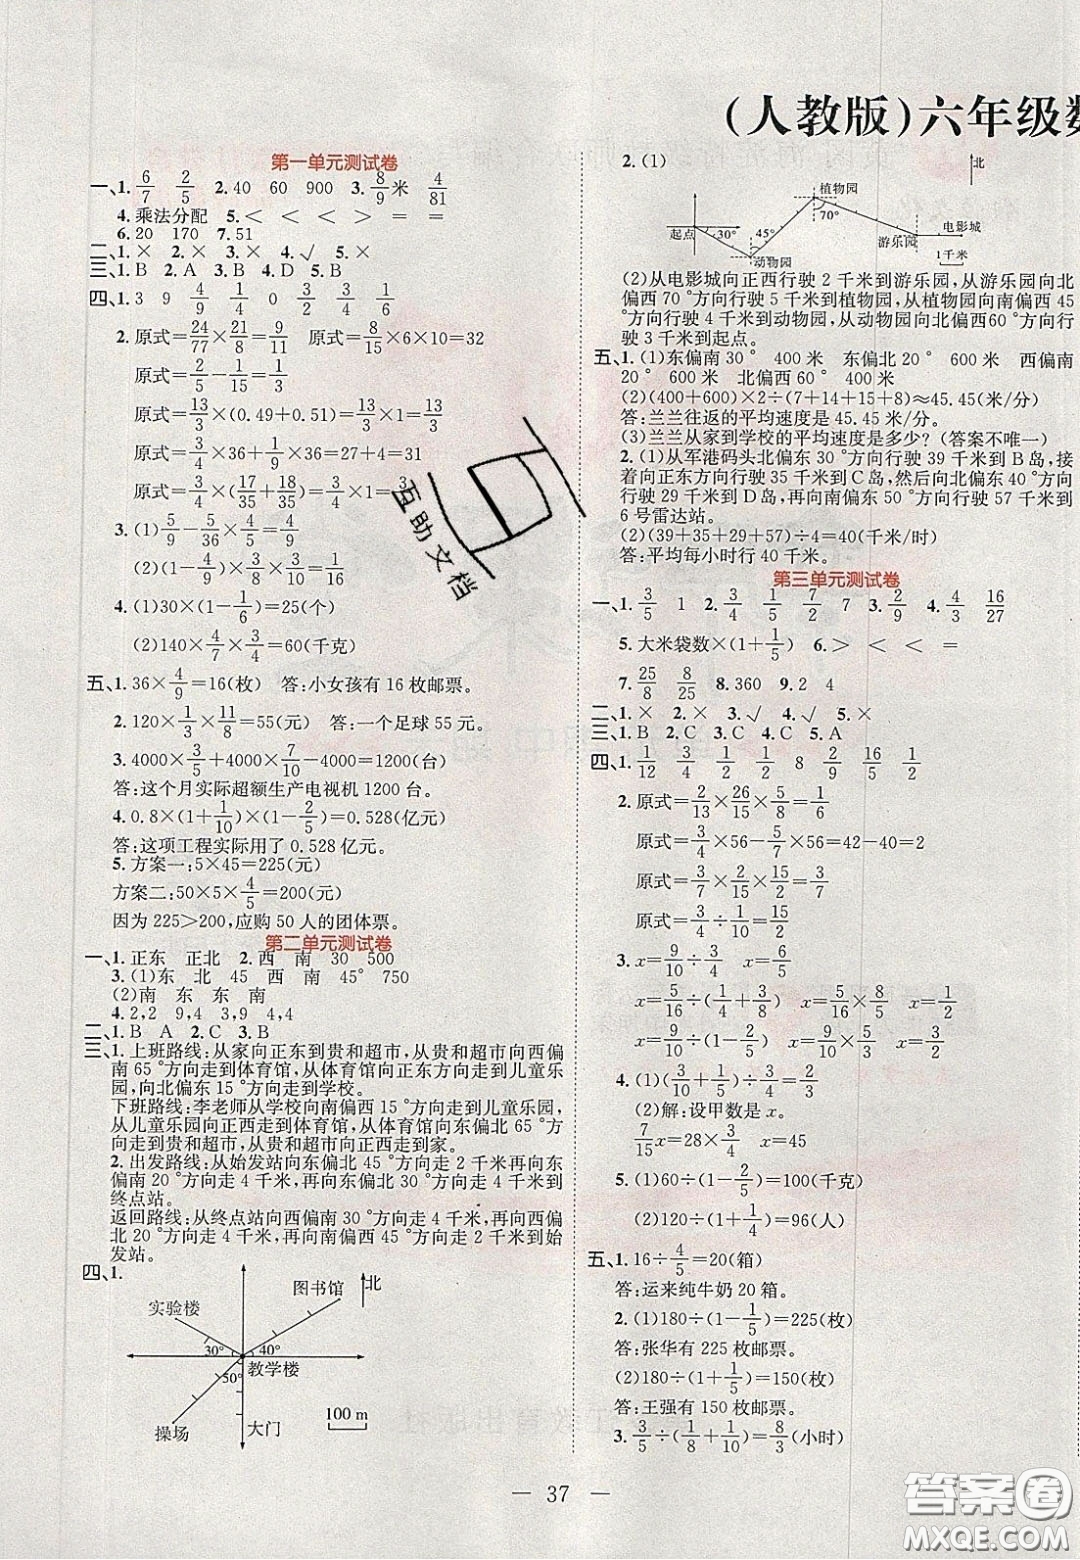 (人教版)六年级数
第一单元测试卷
一、1. 6/7 2/5 2. 40 60 900 3. 8/9米 4/81
4. 乘法分配 5. < < < = =
6. 20 170 7. 51
二、1. × 2. × 3. × 4. √ 5. ×
三、1. B 2. A 3. B 4. D 5. B
四、1. 3 9 4/9 1/4 0 3/2 3/4 4/3
2. 原式=24/77×21/8=9/11 原式=8/15×6×10=32
原式=2/5-1/15=1/3
原式=13/3×(0.49+0.51)=13/3×1=13/3
原式=3/4×36+1/9×36=27+4=31
原式=3/8×(17/35+18/35)=3/8×1=3/8
3. (1)5/9-5/9×1/5=4/9
4. (1)30×(1-1/6)=25(个)
(2)140×4/7×3/4=60(千克)
五、1. 36×4/9=16(枚) 答:小女孩有 16 枚邮票。
2. 120×1/3×11/8=55(元) 答:一个足球 55 元。
答:这个月实际超额生产电视机 1200 台。
4. 0.8×(1+1/10)×(1-2/5)=0.528(亿元)
答:这项工程实际用了 0.528 亿元。
5. 方案一:5×45=225(元)
方案二:50×5×4/5=200(元)
因为 225>200,应购 50 人的团体票。
第二单元测试卷
一、1. 正东 正北 2. 西 南 30 500
3. (1)东 北 45 西 南 45° 750
(2)南 东 东 南
4. 2,2 9,4 3,9 4,4
二、1. B A 2. C 3. B
三、1. 上班路线:从家向正东到贵和超市,从贵和超市向西偏
南 65 °方向走到体育馆,从体育馆向正东方向走到儿童乐
园,向北偏东 15 °方向走到学校。
下班路线:李老师从学校向南偏西 15 °方向走到儿童乐园,
从儿童乐园向正西方向走到体育馆,从体育馆向东偏北 65 °
方向走到贵和超市,从贵和超市向正西方向走到家。
2. 出发路线:从始发站向东偏北 45 °方向走 2 千米再向东
偏南 20 °方向走 4 千米,再向东偏北 30 °方向走 4 千米到
终点站。
返回路线:从终点站向西偏南 30 °方向走 4 千米,再向西偏
北 20 °方向走 4 千米,再向南偏西 45 °方向走 2 千米到始
发站。
四、1.
图书馆
北
实验楼
30°
40°
教学楼
50°
操场
大门
100 m
2. (1)
北
植物园
70°
30°
45°
起点
动物园
游乐园
电影城
1千米
(2)从电影城向正西行驶 2 千米到游乐园,从游乐园向北
偏西 70 °方向行驶 5 千米到植物园,从植物园向南偏西45 °
方向行驶 4 千米到动物园,从动物园向北偏西60 °方向行驶
3 千米到起点。
五、1. (1)东偏南 30 ° 400 米 东偏北 20 ° 600 米 西偏南
20 ° 600 米 北偏西 60 ° 400 米
(2)(400+600)×2÷(7+14+15+8)≈45.45(米/分)
答:兰兰往返的平均速度是 45.45 米/分。
(3)兰兰从家到学校的平均速度是多少?(答案不唯一)
2. (1)从军港码头北偏东 30 °方向行驶 39 千米到 B 岛,接
着向正东方向行驶 35 千米到 C 岛,然后向北偏东 40 °方
向行驶 29 千米到 D 岛,再向南偏东 50 °方向行驶 57 千米到
6 号雷达站。
(2)(39+35+29+57)÷4=40(千米/时)
答:平均每小时行 40 千米。
第三单元测试卷
一、1. 3/5 1 2. 3/4 1/5 7/2 7 3. 2/9 4. 3/4 16/27
5. 大米袋数×(1+1/5) 6. > < < <
7. 25/8 8/25 8. 360 9. 2 4
二、1. × 2. × 3. √ 4. √ 5. ×
三、1. B 2. C 3. C 4. C 5. A
四、1. 1/12 3/4 1/2 1/2 8 2/9 16/5 1/2
2. 原式=2/13×26/15×5/8=1/6
原式=3/4×56-5/7×56=42-40=2
原式=3/7×2/15×7/2=1/5
原式=3/4÷1/10=15/2
3. x=9/10÷3/4 x=6/5
x=5/16÷(1/4+3/8) x=5/16×8/5 x=1/2
4. (1)(3/4+1/10)÷2/5=17/8
(2)解:设甲数是 x。
7/15x=28×3/4 x=45
5. (1)60÷(1-2/5)=100(千克)
五、1. 16÷4/5=20(箱)
答:运来纯牛奶 20 箱。
2. (1)180÷(1-1/5)=225(枚)
答:张华有 225 枚邮票。
(2)180÷(1+1/5)=150(枚)
答:王强有 150 枚邮票。
3. 3/5÷(1/8+1/10)=8/3(小时)
37
互助文档
答案圈
MXQE.COM